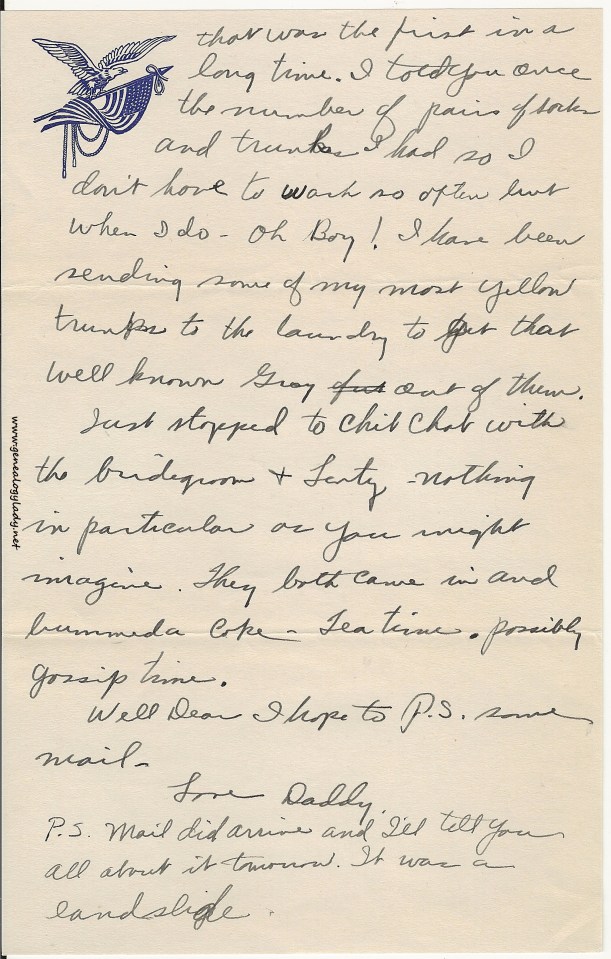 that was the first in a
long time. I told you once
the number of pairs of socks
and trunks I had so I
don't have to wash so often but
when I do - Oh Boy! I have been
sending some of my most yellow
trunks to the laundry to get that
well known Gray out of them.
Just stopped to chit chat with
the bridegroom + - nothing
in particular as you might
imagine. They both came in and
bummed a Coke - Tea time. possibly
gossip time.
Well Dear I hope to P.S. some
mail -
Love Daddy.
P.S. Mail did arrive and I'll tell you
all about it tomorrow. It was a
landslide.
www.genealogylady.net